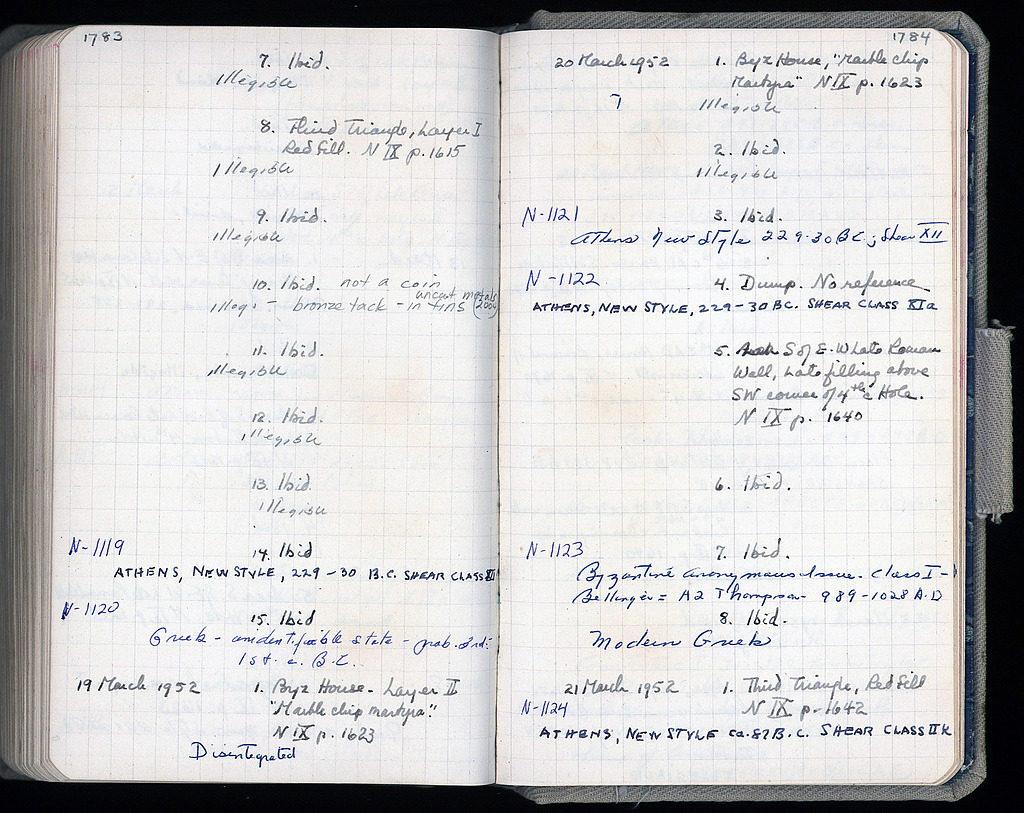 1783
7. Ibid.
Illegible
8. Third Triangle, Layer I
Red fill. N IX p. 1615
Illegible
9. Ibid.
Illegible
10. Ibid. not a coin
Illeg. - bronze tack - in tins uncut metals 2004
11. Ibid.
Illegible
12. Ibid.
Illegible
13. Ibid.
Illegible
N-1119 14. Ibid
ATHENS, NEW STYLE, 229-30 B.C. SHEAR CLASS
N-1120 15. Ibid
Greek - unidentifiable state - prob. 2nd-
1st. c. B.C.
19 March 1952 1. Byz House - Layer II
"Marble chip martyra".
N IX p. 1623
Disintegrated
1784
20 March 1952 1. Byz House, "Marble chip
Martyra" N IX p. 1623
7 Illegible
2. Ibid.
Illegible
N-1121 3. Ibid.
Athens New Style 229-30 B.C.; Shear XII
N-1122 4. Dump. No reference
ATHENS, NEW STYLE, 229-30 B.C. SHEAR CLASS XIa
5. S of E-W Late Roman
Wall, Late filling above
SW corner of 4th c Hole.
N IX p. 1640
6. Ibid.
N-1123 7. Ibid.
Byzantine Anonymous Issue - Class I -
Bellinger = A2 Thompson - 989-1028 A.D
8. Ibid.
Modern Greek
21 March 1952 1. Third Triangle, Red fill
N-1124 N IX p. 1642
ATHENS, NEW STYLE ca. 82 B.C. SHEAR CLASS IIk